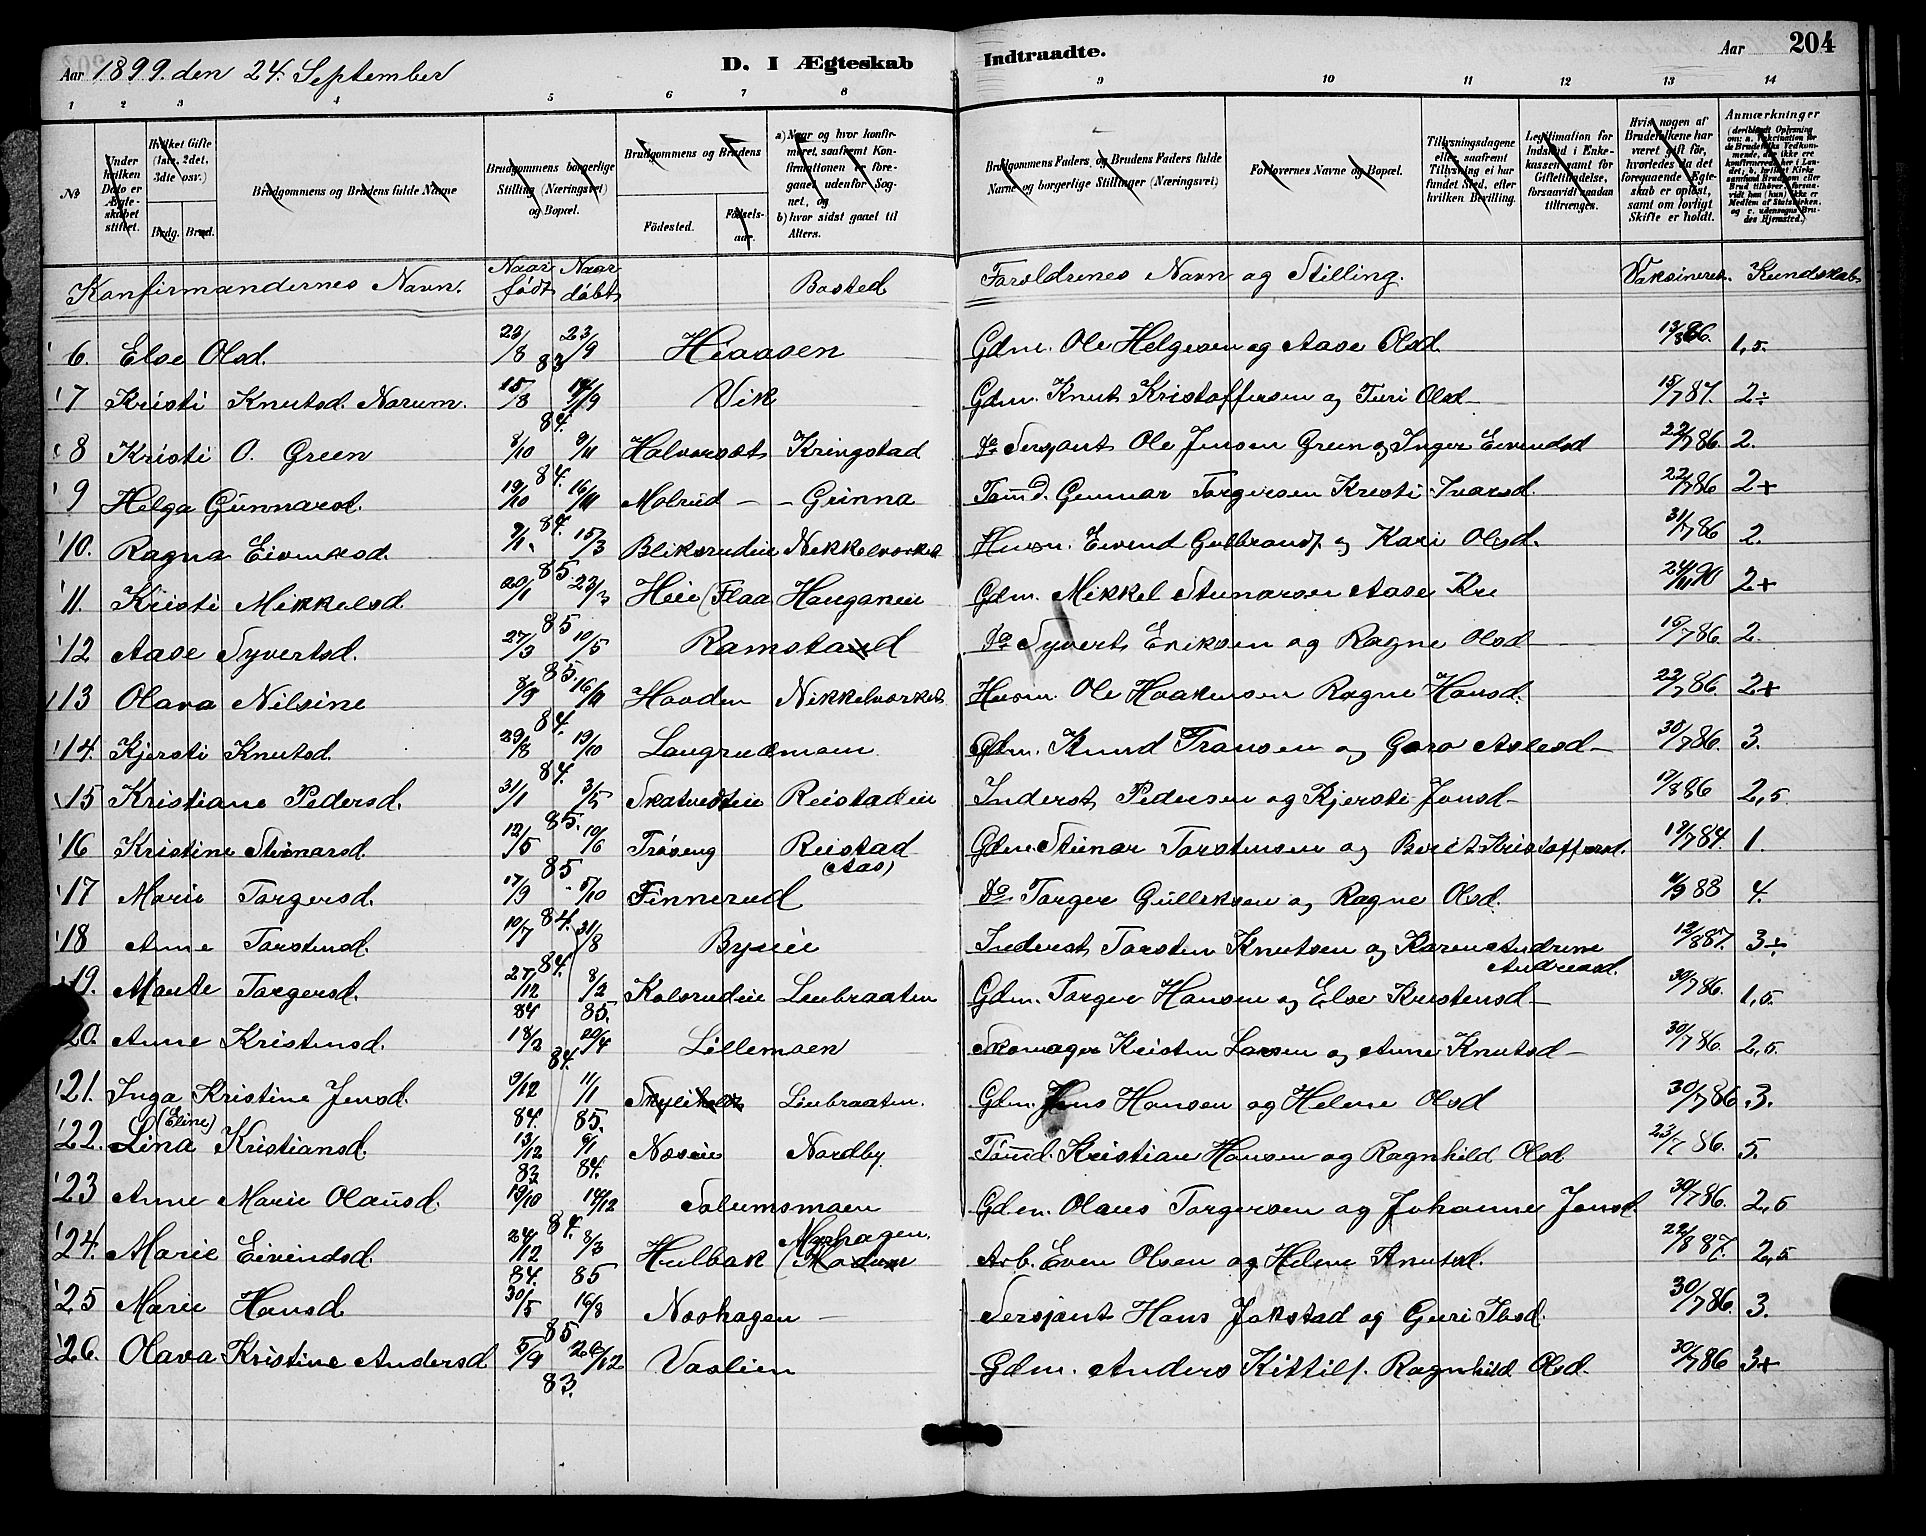 Aar 1899. den 24. September D. I Ægteskab Indtraadte. Aar 204
1 2 3 4 5 6 7 8 9 10 11 12 13 14
No
Under hvilken Dato er Ægteskabet stiftet.
Hvilket Gifte (1ste, 2det, 3die osv.)
Brdg. Brud.
Brudgommens og Brudens fulde Navne
Brudgommens borgerlige Stilling (Næringsvei) og Bopæl.
Brudgommens og Brudens
Födested. Födselsaar.
a) Naar og hvor konfirmeret, saafremt Konfirmationen er foregaaet udenfor Sognet, og
b) hvor sidst gaaet til Alters.
Brudgommens Faders og Brudens Faders fulde Navne og borgerlige Stillinger (Næringsvei)
Forlovernes Navne og Bopæl.
Tillysningsdagene eller, saafremt Tillysning ei har fundet Sted, efter hvilken Bevilling.
Legitimation for Indskud i Enkekassen samt for Giftetilladelse, forsaavidt saadan tiltrænges.
Hvis nogen af Brudefolkene har været gift før, hvorledes da det foregaaende Ægteskab er opløst, samt om lovligt Skifte er holdt.
Anmærkninger
Konfirmandernes Navn. Naar født Naar döbt Bosted Foreldrenes Navn og Stilling. Vaksineret. Kundskab
6. Else Olsd. 23/8 83 23/9 Hiaasen Gdm. Ole Helgesen og Aase Olsd. 13/8 86. 1,5.
7 Kristi Knutsd. Norum. 15/8 84. 14/9 Vik Gdm. Knut Kristoffersen og Turi Olsd 15/7 87. 2÷
8 Kristi O. Green 8/10 84. 9/11 Halvorsöt Kringstad Fr Sersjant Ole Jensen Green og Inger Eivendsd 22/7 86 2.
9 Helga Gunnarsd. 19/10 84. 16/11 Molrud Grinna Tömd. Gunnar Torgersen Kristi Ivarsd. 22/7 86 2+
10. Ragna Eivindsd. 9/1 85. 15/3 Bliksrudeie Nikkelverket Husm. Eivend Gulbrands. og Kari Olsd. 31/7 86 2.
11. Kristi Mikkelsd. 20/1 85 23/3 Heie (Flaa Hauganeie Gdm. Mikkel Stenarsen Aase Kr 24/11 90 2+
12 Aase Syvertsd. 27/3 85. 10/5 Ramstad do Syvert Eriksen og Ragne Olsd 15/7 86 2.
13 Olava Nilsine 8/9 84. 16/11 Hovden Nikkelverket Husm. Ole Haakensen Ragne Hansd. 22/7 86 2+
14. Kjersti Knutsd. 29/8 84. 19/10 Langrudmoen Gdm. Knud Transen og Goro Aslesd 30/7 86. 3.
15 Kristiane Pedersd. 31/1 85. 3/5 Skatvedteie Reistadeie Inderst Pedersen og Kjersti Jonsd 17/8 86 2,5.
16 Kristine Steinarsd. 12/5 85 10/6 Tröseng Reistad (Aas) Gdm. Steinar Torstensen og Berit Kristoffersd. 19/7 84. 1.
17 Marie Torgersd. 17/9 84. 5/10 Finnerud do Torger Gulleksen og Ragne Olsd. 4/9 88 4.
18 Anne Torstensd. 10/7 84. 31/8 Byeie Inderst Torsten Knutsen og Karen Andrine Andreasd. 12/8 87. 3÷
19. Marte Torgersd. 27/12 84 8/2 85. Kolsrudeie Liebraaten Gdm. Torger Hansen og Else Kristensd 30/7 86. 1,5.
20. Anne Kristensd. 18/2 84. 20/4 Lillemoen Skomager Kristen Larsen og Anne Knutsd 30/7 86. 2,5.
21. Inga Kristine Jensd. 9/12 84. 11/1 85. Liebraaten. Gdm. Jens Hansen og Helene Olsd 30/7 86. 3.
22. Lina (Eline) Kristiansd. 13/12 83 6/1 84. Næseie Nordby. Tömd. Kristian Hansen og Ragnhild Olsd 23/7 86. 5.
23 Anne Marie Olausd. 19/10 84. 14/12 Solumsmoen Gdm. Olaus Torgersen og Johanne Jensd 30/7 86. 2,5
24. Marie Eivindsd. 24/12 84. 8/3 85 Hulbak Myrhagen. (Modum Arb. Even Olsen og Helene Knutsd. 22/8 87. 2,5
25 Marie Hansd. 30/5 85 16/8 Neshagen Sersjant Hans Jokstad og Guri Ibsd. 30/7 86. 3.
26. Olava Kristine Andersd 5/9 83. 26/12 Vaslien Gdm. Anders Kittils. Ragnhild Olsd. 30/7 86 3+